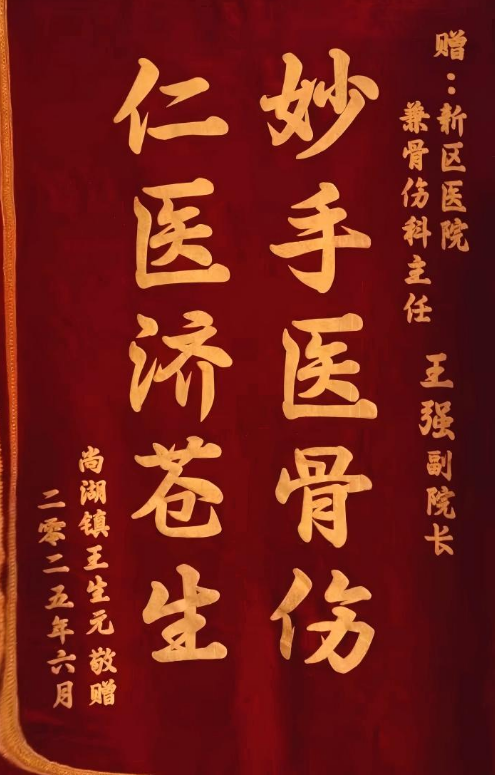 赠：新区医院
兼骨伤科主任 王强副院长
妙手医骨伤
仁医济苍生
尚湖镇王生元 敬赠
二零二五年六月